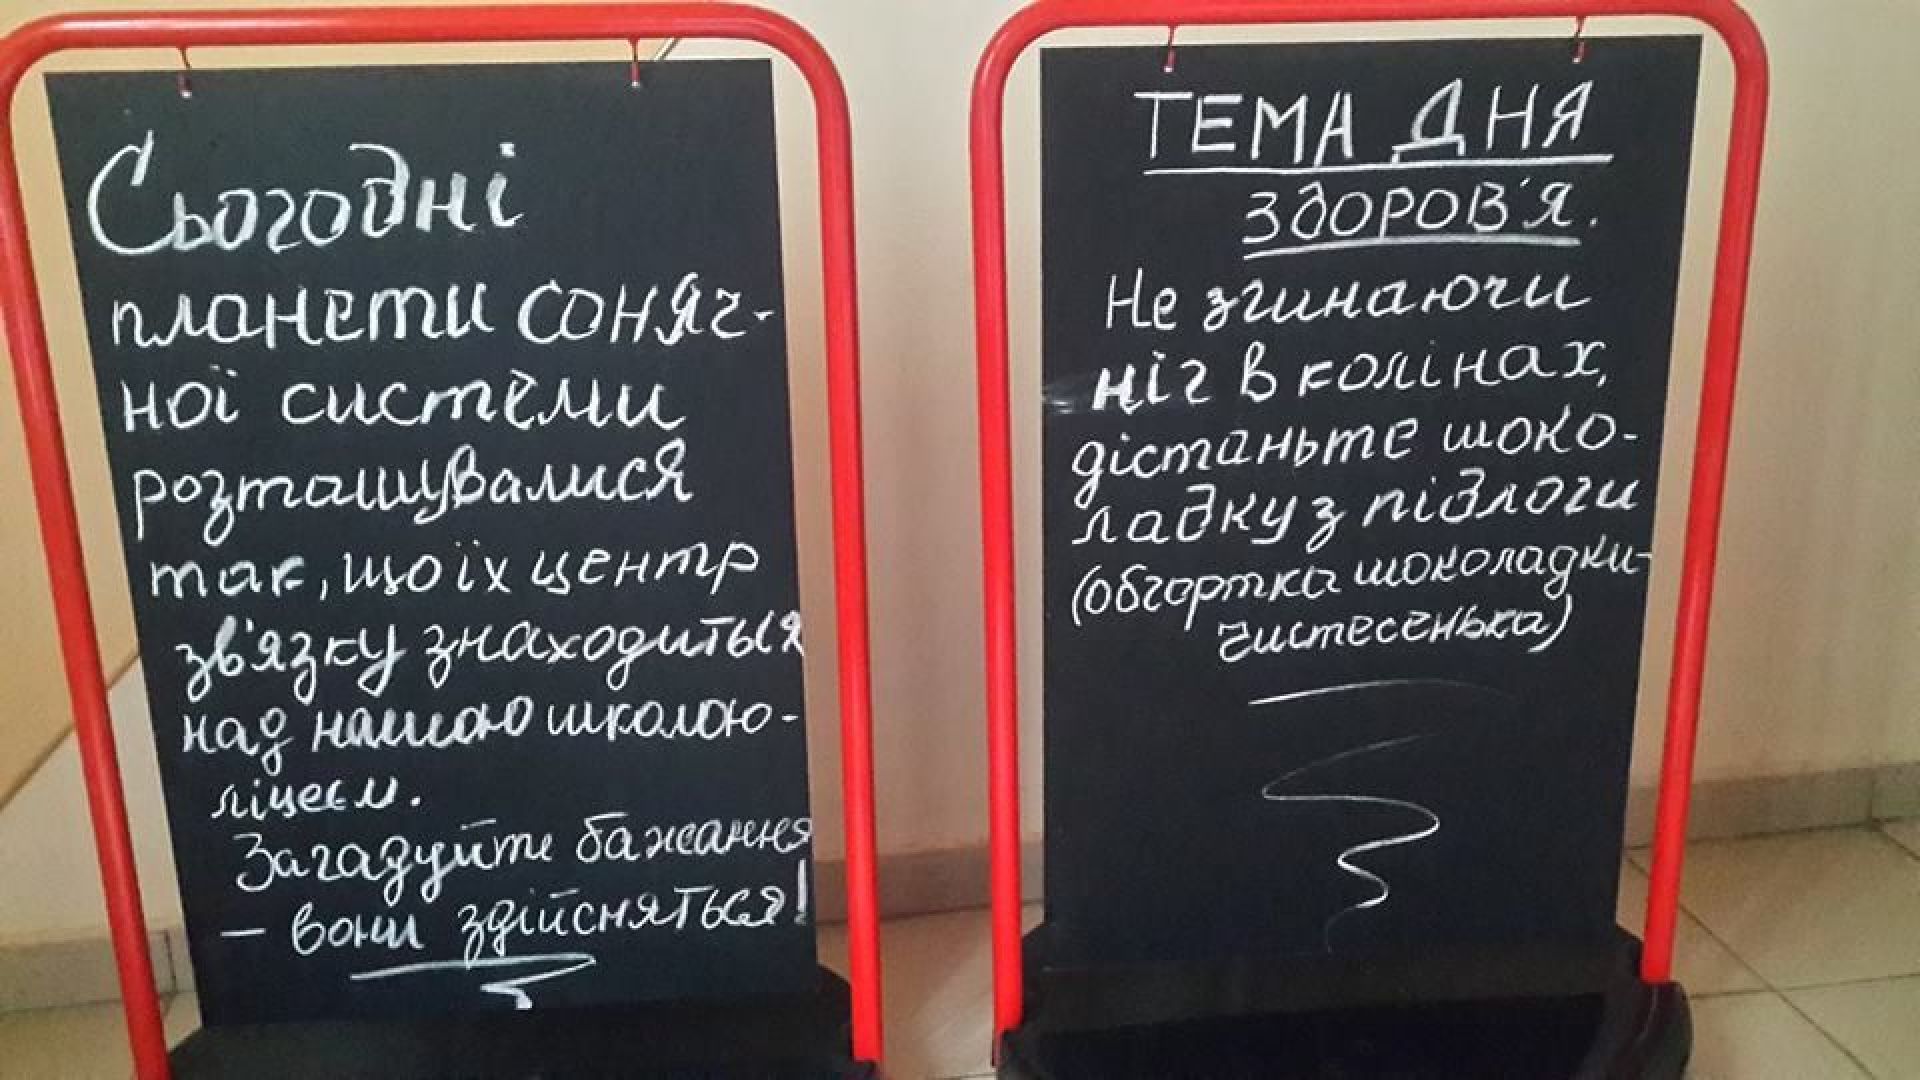 Сьогодні
планети соняч-
ної системи
розташувалися
так, що їх центр
зв'язку знаходиться
над нашою школою-
ліцеєм.
Загадуйте бажання
- вони здійсняться!
ТЕМА ДНЯ
ЗДОРОВ'Я.
Не згинаючи
ніг в колінах,
дістаньте шоко-
ладку з підлоги
(обгортка шоколадки-
чистесенька)